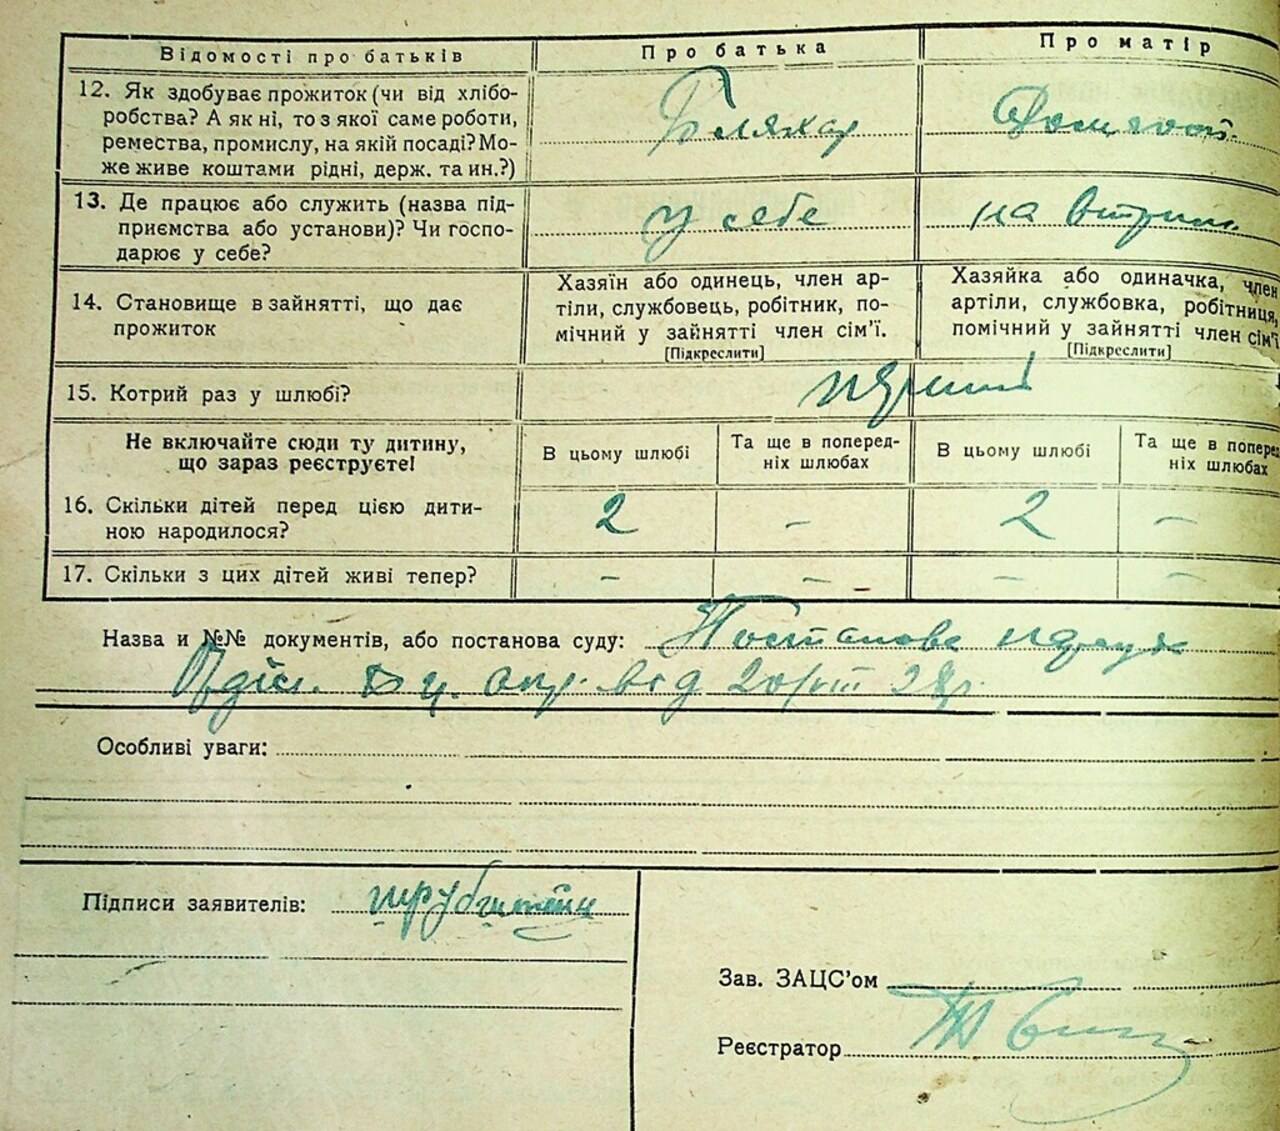 Відомості про батьків
Про батька
Про матір
12. Як здобуває прожиток (чи від хлібо-
робства? А як ні, то з якої саме роботи,
ремества, промислу, на якій посаді? Мо-
же живе коштами рідні, держ. та ин.?)
Бляхар
Домгосп.
13. Де працює або служить (назва під-
приємства або установи)? Чи госпо-
дарює у себе?
у себе
на втрим.
14. Становище в зайнятті, що дає
прожиток
Хазяїн або одинець, член ар-
тіли, службовець, робітник, по-
мічний у зайнятті член сім’ї.
[Підкреслити]
Хазяйка або одиначка, член
артіли, службовка, робітниця,
помічний у зайнятті член сім’ї
[Підкреслити]
15. Котрий раз у шлюбі?
перший
Не включайте сюди ту дитину,
що зараз реєструєте!
В цьому шлюбі
Та ще в поперед-
ніх шлюбах
В цьому шлюбі
Та ще в поперед
ніх шлюбах
16. Скільки дітей перед цією дити-
ною народилося?
2
–
2
–
17. Скільки з цих дітей живі тепер?
–
–
–
–
Назва и №№ документів, або постанова суду: Постанова
від 20/VIII 28р.
Особливі уваги:
Підписи заявителів:
Зав. ЗАЦС’ом
Реєстратор